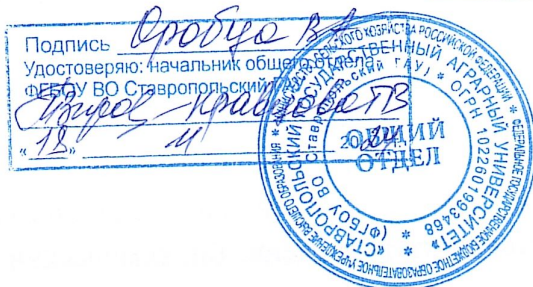 Подпись Оробца В.А
Удостоверяю: начальник общего отдела
ФГБОУ ВО Ставропольский ГАУ
« 18 » 11 2024
МИНИСТЕРСТВО СЕЛЬСКОГО ХОЗЯЙСТВА РОССИЙСКОЙ ФЕДЕРАЦИИ
ФЕДЕРАЛЬНОЕ ГОСУДАРСТВЕННОЕ БЮДЖЕТНОЕ ОБРАЗОВАТЕЛЬНОЕ УЧРЕЖДЕНИЕ ВЫСШЕГО ОБРАЗОВАНИЯ
«СТАВРОПОЛЬСКИЙ ГОСУДАРСТВЕННЫЙ АГРАРНЫЙ УНИВЕРСИТЕТ»
* ОГРН 1022601993468 *
(ФГБОУ ВО Ставропольский ГАУ)
ОБЩИЙ
ОТДЕЛ